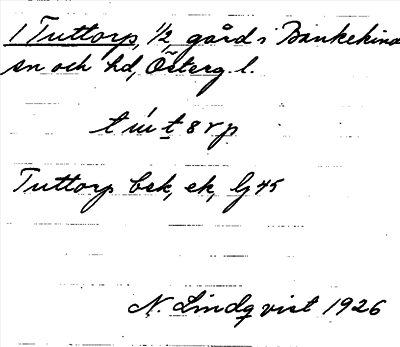 1 Tuttorp, 1/2 gård i Bankekind
sn och hd, Österg l.
Tuttorp bsk, ek, Gj 45
N. Lindqvist 1926